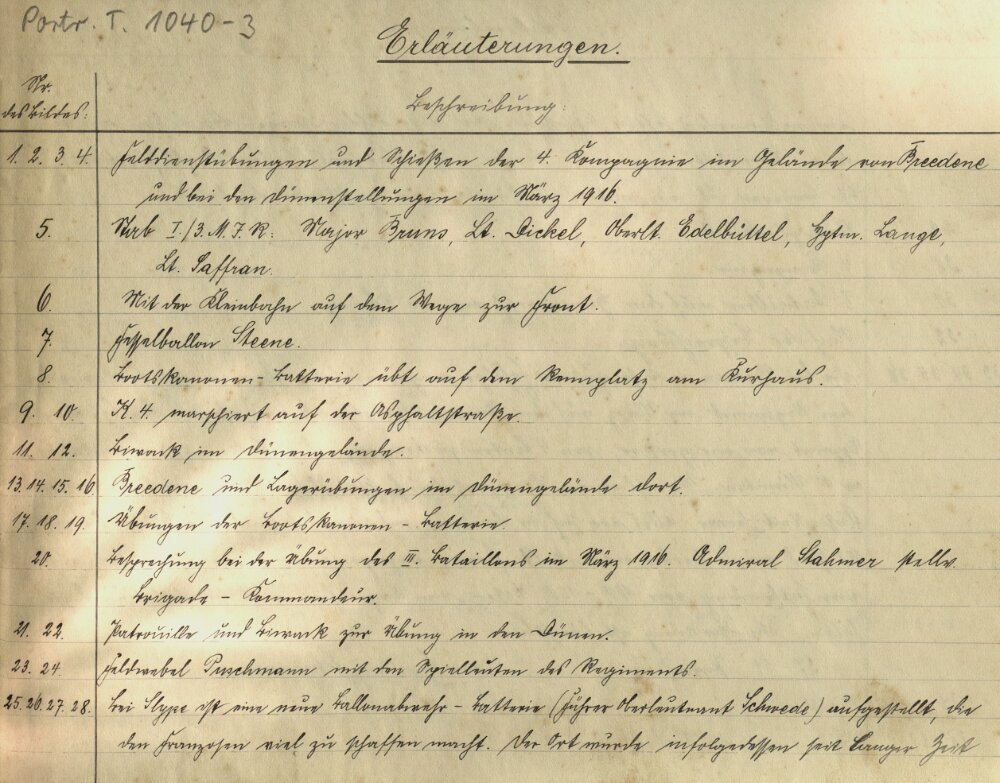 Portr. T. 1040-3
Erläuterungen.
Nr. des Bildes: Beschreibung:
1. 2. 3. 4. Felddienstübungen und Schießen der 4. Kompagnie im Gelände von Breedene
und bei den Dünenstellungen im März 1916.
5. Stab I./3.M.I.R.: Major Bruns, Lt. Dickel, Oberlt. Edelbüttel, Hptm. Lange,
Lt. Saffran.
6. Mit der Kleinbahn auf dem Wege zur Front.
7. Fesselballon Steene.
8. Bootskanonen-Batterie übt auf dem Rennplatz am Kurhaus.
9. 10. K. 4. marschiert auf der Asphaltstraße.
11. 12. Biwack im Dünengelände.
13. 14. 15. 16. Breedene und Lagerübungen im Dünengelände dort.
17. 18. 19. Übungen der Bootskanonen-Batterie
20. Besprechung bei der Übung des III. Bataillons im März 1916. Admiral Stahmer stellv.
Brigade-Kommandeur.
21. 22. Patrouille und Biwack zur Übung in den Dünen.
23. 24. Feldwebel Puschmann mit den Spielleuten des Regiments.
25. 26. 27. 28. Bei Slype ist eine neue Ballonabwehr-Batterie (Führer Oberleutnant Schwede) aufgestellt, die
den Franzosen viel zu schaffen macht. Der Ort wurde infolgedessen seit langer Zeit